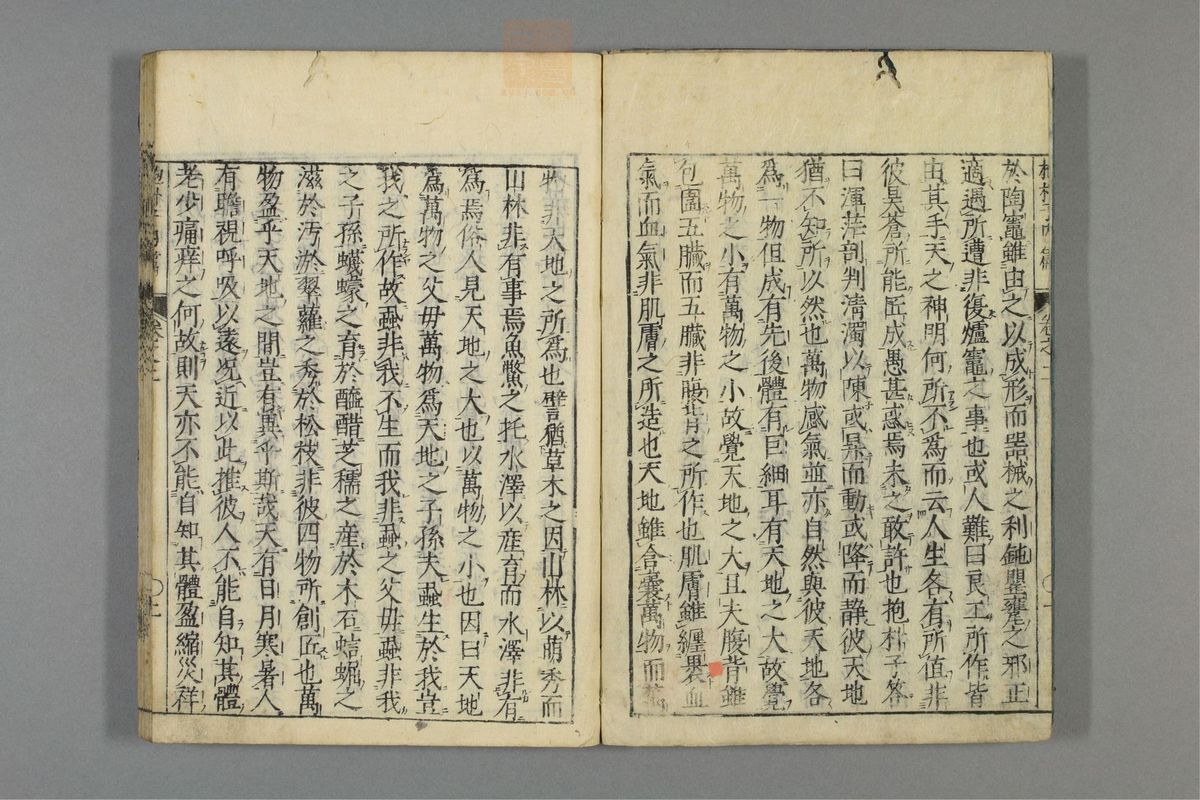 於陶竈雖由之以成形而噐械之利鈍罌甕之邪正
適遇所遭非復爐竈之事也或人難曰良工所作皆
由其手天之神明何所不為而云人生各有所值非
彼昊蒼所能匠成愚甚惑焉未之敢許也抱朴子答
曰渾茫剖判清濁以陳或昇而動或降而静彼天地
猶不知所以然也萬物感氣並亦自然與彼天地各
為一物但成有先後體有巨細耳有天地之大故覺
萬物之小有萬物之小故覺天地之大且夫腹背雖
包圍五臟而五臟非腹背之所作也肌膚雖纏裹血
氣而血氣非肌膚之所造也天地雖含囊萬物而萬
物非天地之所為也譬猶草木之因山林以萌秀而
山林非有事焉魚鱉之托水澤以産育而水澤非有
為焉俗人見天地之大也以萬物之小也因曰天地
為萬物之父母萬物為天地之子孫夫蝨生於我豈
我之所作故蝨非我不生而我非蝨之父母蝨非我
之子孫蠛蠓之育於醯醋芝檽之産於木石蛣𧌑之
滋於汚淤翠蘿之秀於松枝非彼四物所創匠也萬
物盈乎天地之間豈有異乎斯哉天有日月寒暑人
有瞻視呼吸以遠况近以此推彼人不能自知其體
老少痛痒之何故則天亦不能自知其體盈縮災祥